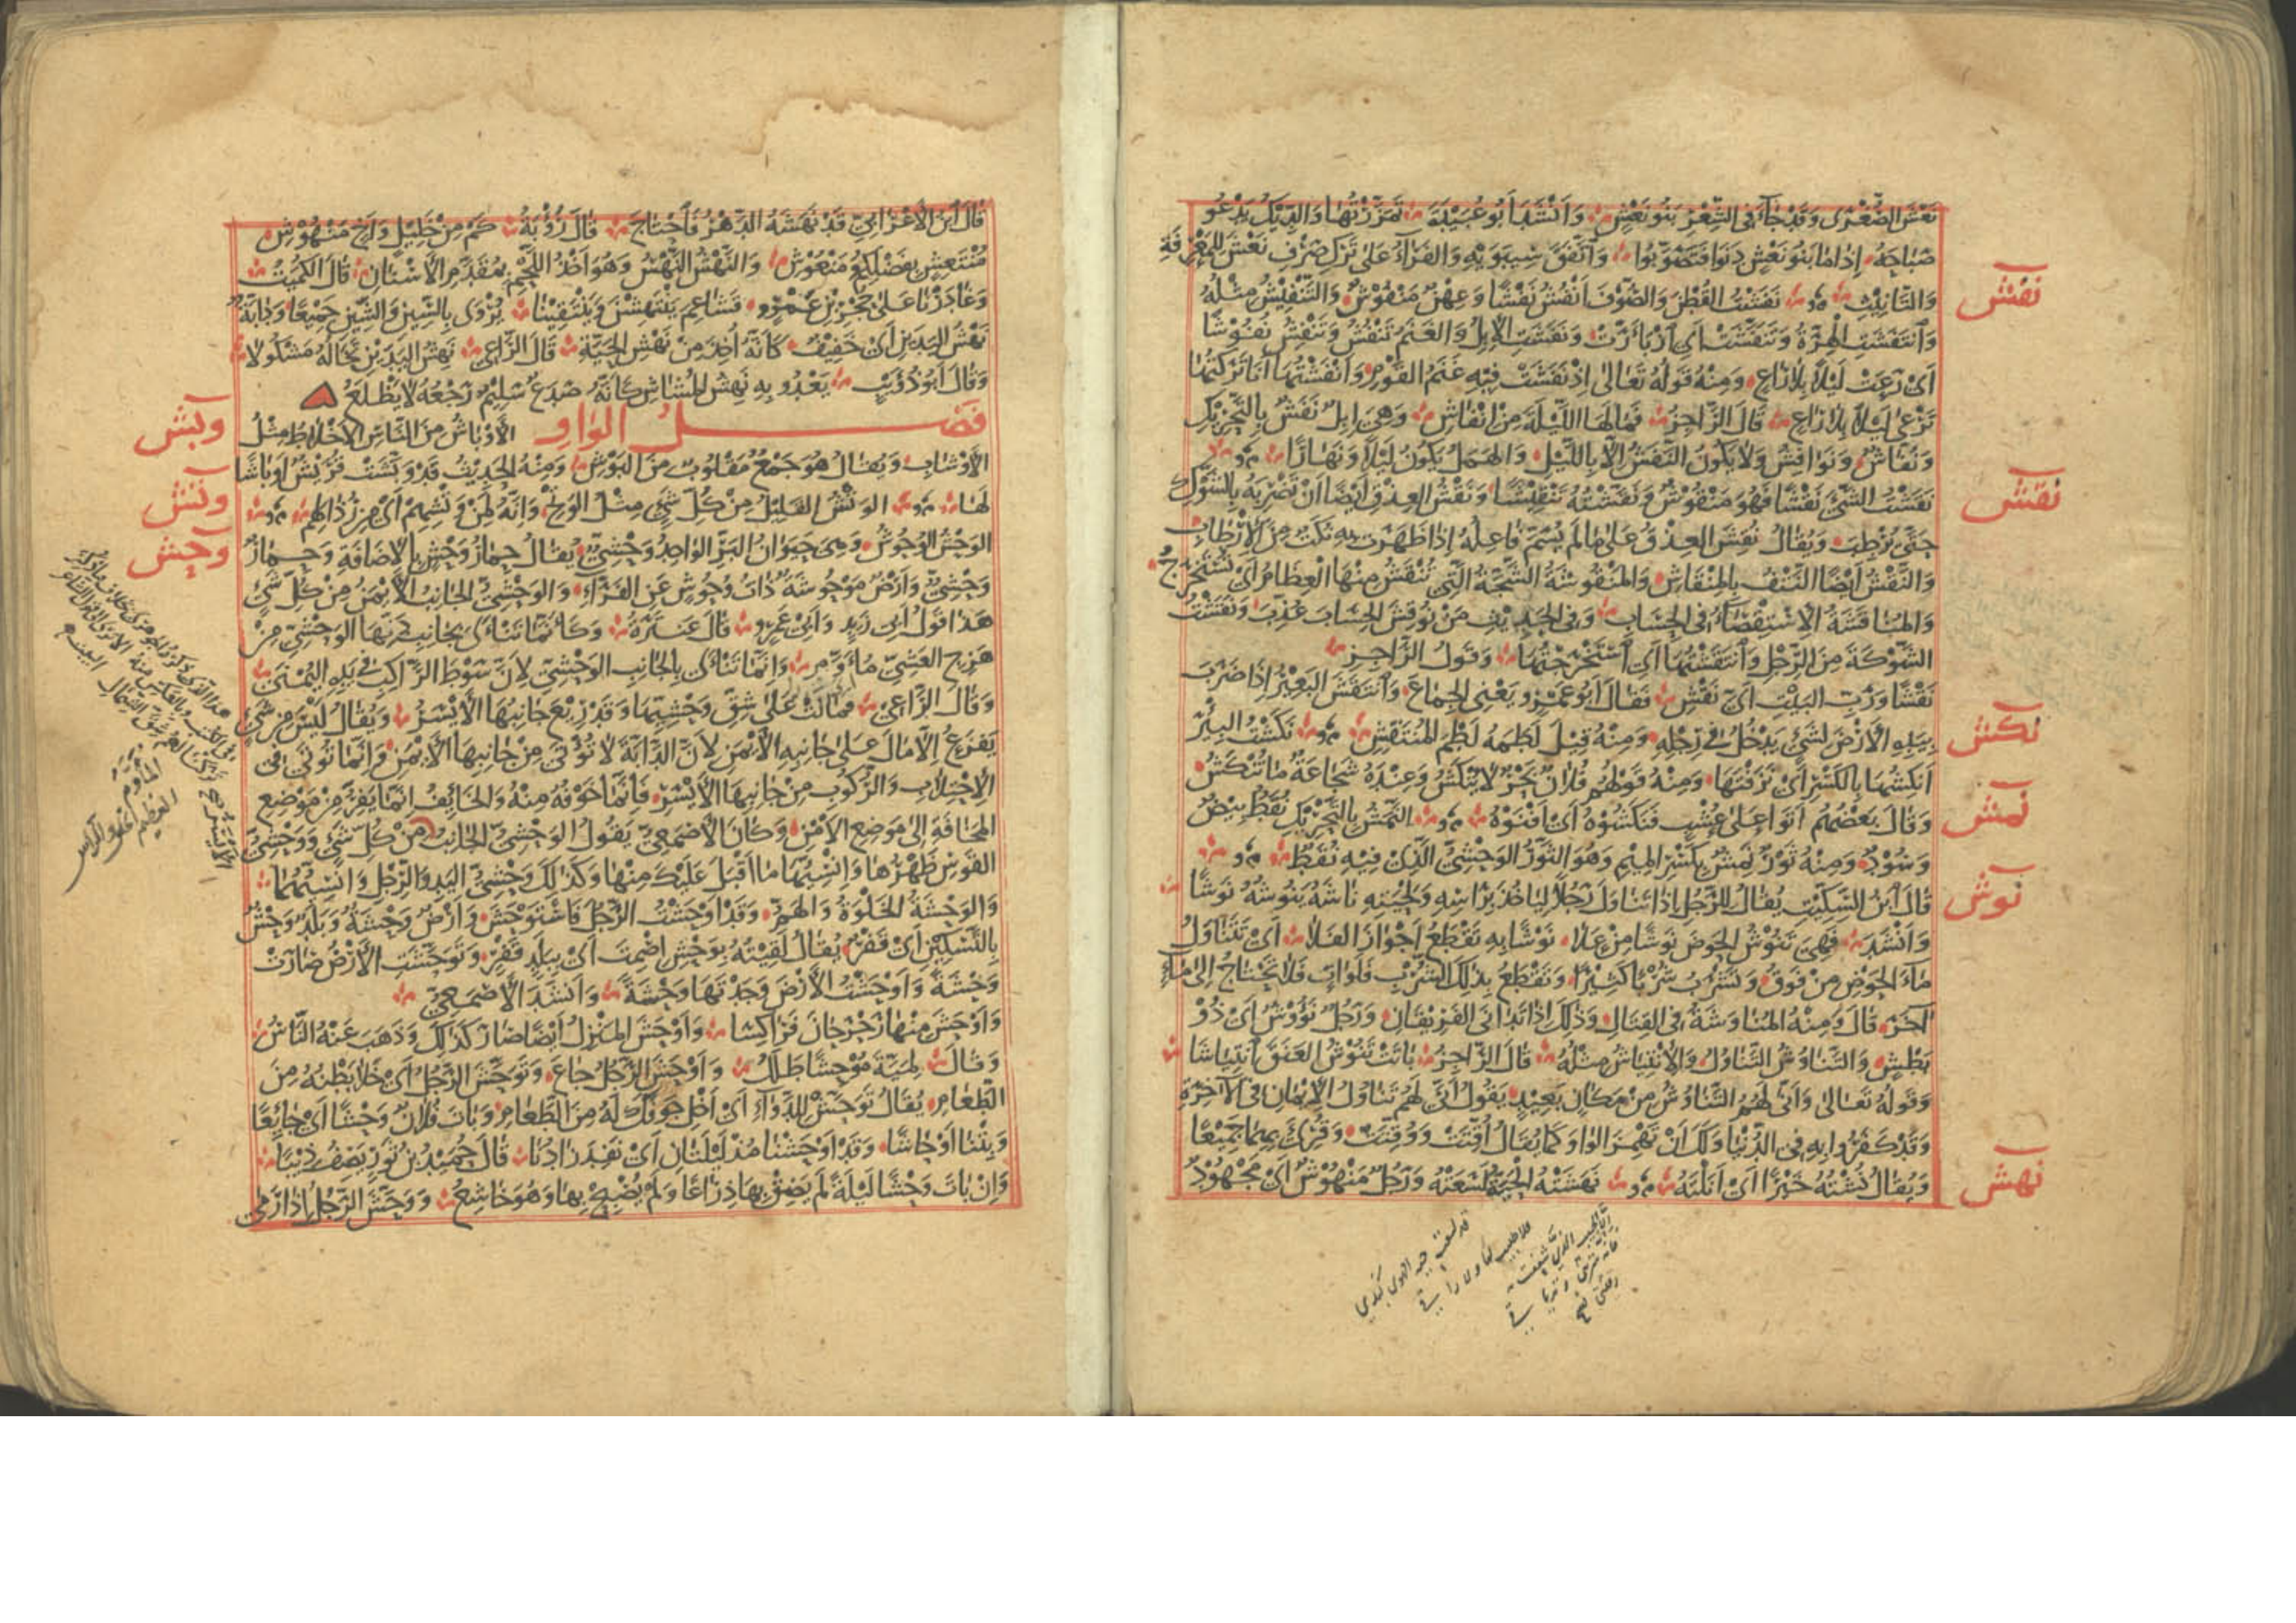 نَعْشَ الصُّغْرَى وَقَدْ جَاءَ فِى الشِّعْرِ بَنُو نَعْشٍ وَأَنْشَدَ أَبُو عُبَيْدَةَ تَمَزَّزْتُهَا وَالدِّيكُ يَدْعُو
صَبَاحَهُ إِذَا مَا بَنُو نَعْشٍ دَنَوْا فَتَصَوَّبُوا وَاتَّفَقَ سِيبَوَيْهِ وَالفَرَّاءُ عَلَى تَرْكِ صَرْفِ نَعْشَ لِلْمَعْرِفَةِ
نفش
وَالتَّانِيثِ نَفَشْتُ القُطْنَ وَالصُّوفَ أَنْفُشُ نَفْشًا وَعِهْنٌ مَنْفُوشٌ وَالتَّنْفِيشُ مِثْلُهُ
وَانْتَفَشَتِ الهِرَّةُ وَتَنَفَّشَتْ أَىْ ازْبَأَرَّتْ وَنَفَشَتِ الإِبِلُ وَالغَنَمُ تَنْفُشُ وَتَنْفِشُ نُفُوشًا
أَىْ رَعَتْ لَيْلًا بِلَا رَاعٍ وَمِنْهُ قَوْلُهُ تَعَالَى إِذْ نَفَشَتْ فِيهِ غَنَمُ القَوْمِ وَأَنْفَشْتُهَا أَنَا تَرَكْتُهَا
تَرْعَى لَيْلًا بِلَا رَاعٍ قَالَ الرَّاجِزُ فَمَا لَهَا اللَّيْلَةَ مِنْ إِنْفَاشٍ وَهِىَ إِبِلٌ نَفَشٌ بِالتَّحْرِيكِ
وَنُفَّاشٌ وَنَوَافِشُ وَلَا يَكُونُ النَّفَشُ إِلَّا بِاللَّيْلِ وَالهَمَلُ يَكُونُ لَيْلًا وَنَهَارًا
نقش
نَقَشْتُ الشَّىْءَ نَقْشًا فَهُوَ مَنْقُوشٌ وَنَقَّشْتُهُ تَنْقِيشًا وَنَقْشُ العِذْقِ أَيْضًا أَنْ تَضْرِبَهُ بِالشَّوْكِ
حَتَّى يُرْطِبَ وَيُقَالُ نُقِشَ العِذْقُ عَلَى مَا لَمْ يُسَمَّ فَاعِلُهُ إِذَا ظَهَرَتْ بِهِ نُكَتٌ مِنَ الإِرْطَابِ
وَالنَّقْشُ أَيْضًا النَّتْفُ بِالمِنْقَاشِ وَالمَنْقُوشَةُ الشَّجَّةُ الَّتِى تُنْقَشُ مِنْهَا العِظَامُ أَىْ تُسْتَخْرَجُ
وَالمُنَاقَشَةُ الِاسْتِقْصَاءُ فِى الحِسَابِ وَفِى الحَدِيثِ مَنْ نُوقِشَ الحِسَابَ عُذِّبَ وَنَقَشْتُ
الشَّوْكَةَ مِنَ الرِّجْلِ وَانْتَقَشْتُهَا أَىْ اسْتَخْرَجْتُهَا وَقَوْلُ الرَّاجِزِ
نَقْشًا وَرَبِّ البَيْتِ أَىَّ نَقْشِ فَقَالَ أَبُو عَمْرٍو يَعْنِى الجِمَاعَ وَانْتَقَشَ البَعِيرُ إِذَا ضَرَبَ
نكش
بِيَدِهِ الأَرْضَ لِشَىْءٍ يَدْخُلُ فِى رِجْلِهِ وَمِنْهُ قِيلَ لَطَمَهُ لَطْمَ المُنْتَقِشِ نَكَشْتُ البِئْرَ
أَنْكِشُهَا بِالكَسْرِ أَىْ نَزَفْتُهَا وَمِنْهُ قَوْلُهُمْ فُلَانٌ بَحْرٌ لَا يُنْكَشُ وَعِنْدَهُ شَجَاعَةٌ مَا تُنْكَشُ
نمش
وَقَالَ بَعْضُهُمْ أَتَوْا عَلَى عُشْبٍ فَنَكَشُوهُ أَىْ أَفْنَوْهُ النَّمَشُ بِالتَّحْرِيكِ نُقَطٌ بِيضٌ
وَسُودٌ وَمِنْهُ ثَوْرٌ نَمِشٌ بِكَسْرِ المِيمِ وَهُوَ الثَّوْرُ الوَحْشِىُّ الَّذِى فِيهِ نُقَطٌ
نوش
قَالَ ابْنُ السِّكِّيتِ يُقَالُ لِلرَّجُلِ إِذَا تَنَاوَلَ رَجُلًا لِيَأْخُذَ بِرَأْسِهِ وَلِحْيَتِهِ نَاشَهُ يَنُوشُهُ نَوْشًا
وَأَنْشَدَ فَهِىَ تَنُوشُ الحَوْضَ نَوْشًا مِنْ عَلَا نَوْشًا بِهِ تَقْطَعُ أَجْوَازَ الفَلَا أَىْ تَتَنَاوَلُ
مَاءَ الحَوْضِ مِنْ فَوْقُ وَتَشْرَبُ شُرْبًا كَثِيرًا وَتَقْطَعُ بِذَلِكَ الشُّرْبِ فَلَوَاتٍ فَلَا تَحْتَاجُ إِلَى مَاءٍ
آخَرَ قَالَ وَمِنْهُ المُنَاوَشَةُ فِى القِتَالِ وَذَلِكَ إِذَا تَدَانَى الفَرِيقَانِ وَرَجُلٌ نَؤُوشٌ أَىْ ذُو
بَطْشٍ وَالتَّنَاوُشُ التَّنَاوُلُ وَالِانْتِيَاشُ مِثْلُهُ قَالَ الرَّاجِزُ بَاتَتْ تَنُوشُ العَنَقَ انْتِيَاشَا
وَقَوْلُهُ تَعَالَى وَأَنَّى لَهُمُ التَّنَاوُشُ مِنْ مَكَانٍ بَعِيدٍ يَقُولُ أَنَّى لَهُمْ تَنَاوُلُ الإِيمَانِ فِى الآخِرَةِ
وَقَدْ كَفَرُوا بِهِ فِى الدُّنْيَا وَلَكَ أَنْ تَهْمِزَ الوَاوَ كَمَا يُقَالُ أُقِّتَتْ وَوُقِّتَتْ وَقُرِئَ بِهِمَا جَمِيعًا
نهش
وَيُقَالُ نُشْتُهُ خَيْرًا أَىْ أَنَلْتُهُ نَهَشَتْهُ الحَيَّةُ لَسَعَتْهُ وَرَجُلٌ مَنْهُوشٌ أَىْ مَجْهُودٌ
قد لسعت حية الهوى كبدي
فلا طبيب لها ولا راقي
إلا الحبيب الذي شغفت به
قَالَ ابْنُ الأَعْرَابِىِّ قَدْ نَهَشَهُ الدَّهْرُ فَاحْتَاجَ قَالَ رُؤْبَةُ كَمْ مِنْ خَلِيلٍ وَأَخٍ مَنْهُوشِ
مُنْتَعِشٍ بِفَضْلِكُمْ مَنْعُوشِ وَالنَّهْشُ النَّهْسُ وَهُوَ أَخْذُ اللَّحْمِ بِمُقَدَّمِ الأَسْنَانِ قَالَ الكُمَيْتُ
وَغَادَرْنَا عَلَى حُجْرِ بْنِ عَمْرٍو قَشَاعِمَ يَنْتَهِشْنَ وَيَنْتَقِينَا يُرْوَى بِالشِّينِ وَالسِّينِ جَمِيعًا وَدَابَّةٌ
نَهْشُ اليَدَيْنِ أَىْ خَفِيفٌ كَأَنَّهُ أُخِذَ مِنْ نَهْشِ الحَيَّةِ قَالَ الرَّاعِى نَهْشَ اليَدَيْنِ تَخَالُهُ مَشْكُولَا
وَقَالَ أَبُو ذُؤَيْبٍ يَعْدُو بِهِ نَهِشُ المُشَاشِ كَأَنَّهُ صَدَعٌ سَلِيمٌ رَجْعُهُ لَا يَظْلَعُ
فَصْلُ الوَاوِ
وبش
الأَوْبَاشُ مِنَ النَّاسِ الأَخْلَاطُ مِثْلُ
الأَوْشَابِ وَيُقَالُ هُوَ جَمْعٌ مَقْلُوبٌ مِنَ البَوْشِ وَمِنْهُ الحَدِيثُ قَدْ وَبَّشَتْ قُرَيْشٌ أَوْبَاشًا
وتش
لَهَا الوَتْشُ القَلِيلُ مِنْ كُلِّ شَىْءٍ مِثْلُ الوَتْحِ وَإِنَّهُ لَمِنْ وَتْشِهِمْ أَىْ مِنْ رُذَالِهِمْ
وحش
الوَحْشُ الوُحُوشُ وَهِىَ حَيَوَانُ البَرِّ الوَاحِدُ وَحْشِىٌّ يُقَالُ حِمَارُ وَحْشٍ بِالإِضَافَةِ وَحِمَارٌ
وَحْشِىٌّ وَأَرْضٌ مَوْحُوشَةٌ ذَاتُ وُحُوشٍ عَنِ الفَرَّاءِ وَالوَحْشِىُّ الجَانِبُ الأَيْمَنُ مِنْ كُلِّ شَىْءٍ
هَذَا قَوْلُ أَبِى زَيْدٍ وَأَبِى عَمْرٍو قَالَ عَنْتَرَةُ وَكَأَنَّمَا تَنْأَى بِجَانِبِ دَفِّهَا الوَحْشِىِّ مِنْ
هَزِجِ العَشِىِّ مُأَوَّمِ وَإِنَّمَا تَنْأَى بِالجَانِبِ الوَحْشِىِّ لِأَنَّ سَوْطَ الرَّاكِبِ فِى يَدِهِ اليُمْنَى
وَقَالَ الرَّاعِى فَمَالَتْ عَلَى شِقِّ وَحْشِيِّهَا وَقَدْ رِيعَ جَانِبُهَا الأَيْسَرُ وَيُقَالُ لَيْسَ مِنْ شَىْءٍ
يَفْزَعُ إِلَّا مَالَ عَلَى جَانِبِهِ الأَيْمَنِ لِأَنَّ الدَّابَّةَ لَا تُؤْتَى مِنْ جَانِبِهَا الأَيْمَنِ وَإِنَّمَا تُؤْتَى فِى
الِاحْتِلَابِ وَالرُّكُوبِ مِنْ جَانِبِهَا الأَيْسَرِ فَإِنَّمَا خَوْفُهُ مِنْهُ وَالخَائِفُ إِنَّمَا يَفِرُّ مِنْ مَوْضِعِ
المَخَافَةِ إِلَى مَوْضِعِ الأَمْنِ وَكَانَ الأَصْمَعِىُّ يَقُولُ الوَحْشِىُّ الجَانِبُ مِنْ كُلِّ شَىْءٍ وَوَحْشِىُّ
القَوْسِ ظَهْرُهَا وَإِنْسِيُّهَا مَا أَقْبَلَ عَلَيْكَ مِنْهَا وَكَذَلِكَ وَحْشِىُّ اليَدِ وَالرِّجْلِ وَإِنْسِيُّهُمَا
وَالوَحْشَةُ الخَلْوَةُ وَالهَمُّ وَقَدْ أَوْحَشْتُ الرَّجُلَ فَاسْتَوْحَشَ وَأَرْضٌ وَحْشَةٌ وَبَلَدٌ وَحْشٌ
بِالتَّسْكِينِ أَىْ قَفْرٌ يُقَالُ لَقِيتُهُ بِوَحْشِ إِصْمِتَ أَىْ بِبَلَدٍ قَفْرٍ وَتَوَحَّشَتِ الأَرْضُ صَارَتْ
وَحْشَةً وَأَوْحَشْتُ الأَرْضَ وَجَدْتُهَا وَحْشَةً وَأَنْشَدَ الأَصْمَعِىُّ
وَأَوْحَشَ مِنْهَا رَحْرَحَانَ فَرَاكِسَا وَأَوْحَشَ المَنْزِلُ أَيْضًا صَارَ كَذَلِكَ وَذَهَبَ عَنْهُ النَّاسُ
وَقَالَ لِمَيَّةَ مُوحِشًا طَلَلُ وَأَوْحَشَ الرَّجُلُ جَاعَ وَتَوَحَّشَ الرَّجُلُ أَىْ خَلَا بَطْنُهُ مِنَ
الطَّعَامِ يُقَالُ تَوَحَّشْ لِلدَّوَاءِ أَىْ أَخْلِ جَوْفَكَ لَهُ مِنَ الطَّعَامِ وَبَاتَ فُلَانٌ وَحْشًا أَىْ جَائِعًا
وَبِتْنَا أَوْحَاشًا وَقَدْ أَوْحَشْنَا مُذْ لَيْلَتَانِ أَىْ نَفِدَ زَادُنَا قَالَ حُمَيْدُ بْنُ ثَوْرٍ يَصِفُ ذِئْبًا
وَإِنْ بَاتَ وَحْشًا لَيْلَةً لَمْ يَضِقْ بِهَا ذِرَاعًا وَلَمْ يُصْبِحْ بِهَا وَهُوَ خَاشِعُ وَوَحَّشَ الرَّجُلُ إِذَا رَمَى